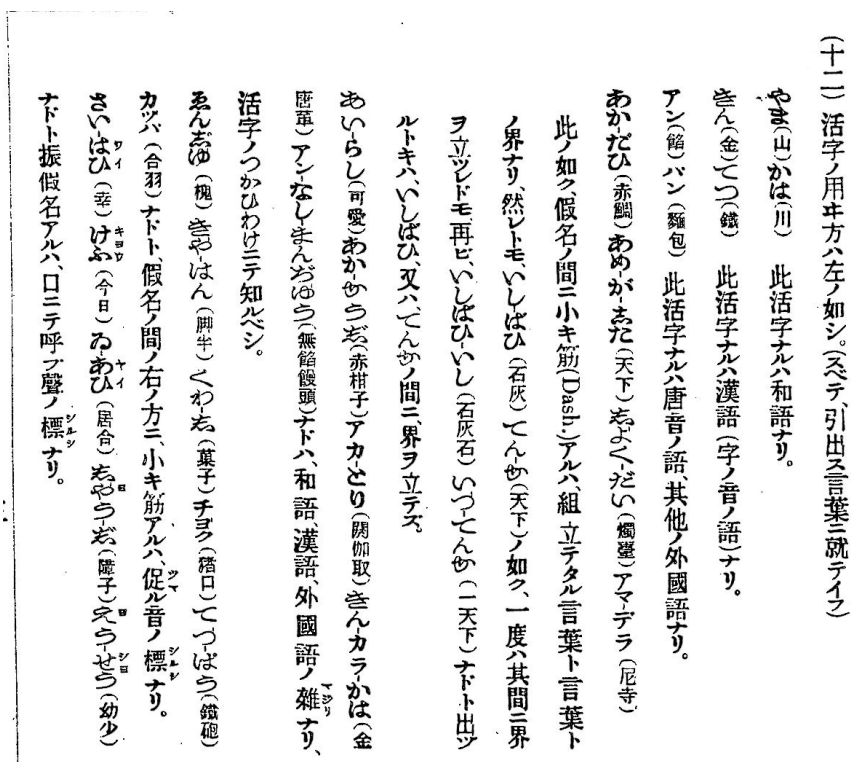 (十二) 活字ノ用ヰ方ハ左ノ如シ。(スベテ、引出ス言葉ニ就テイフ)
やま(山)かは(川) 此活字ナルハ和語ナリ。
きん(金)てつ(鐵) 此活字ナルハ漢語(字ノ音ノ語)ナリ。
アン(餡)パン(麵包) 此活字ナルハ唐音ノ語、其他ノ外國語ナリ。
あか-だひ(赤鯛)あめ-が-志た(天下)志よく-だい(燭臺)アマ-デラ(尼寺)
此ノ如ク、假名ノ間ニ小キ筋(Dash.)アルハ、組立テタル言葉ト言葉ト
ノ界ナリ、然レトモ、いしばひ(石灰)てんか(天下)ノ如ク、一度ハ其間ニ界
ヲ立ツレドモ、再ビ、いしばひ-いし(石灰石)いつ-てんか(一天下)ナドト出ヅ
ルトキハ、いしばひ、又ハ、てんかノ間ニ、界ヲ立テズ。
あい-らし(可愛)あか-かうぢ(赤柑子)アカ-とり(閼伽取)きん-カラ-かは(金
唐革)アン-なし-まんぢゆう(無餡饅頭)ナドハ、和語、漢語、外國語ノ雜マジリナリ、
活字ノつかひわけニテ知ルベシ。
ゑん志゚ゆ(槐)きやはん(脚半)くわ-志(菓子)チヨク(猪口)てつ-ぱう(鐵砲)
カツパ(合羽)ナドト、假名ノ間ノ右ノ方ニ、小キ筋アルハ、促ツマル音ノ標シルシナリ。
さいはひワイ(幸)けふキョウ(今日)ゐ-あひヤイ(居合)志やう-じヨ(障子)えうせうヨシヨ(幼少)
ナドト振假名アルハ、口ニテ呼ブ聲ノ標シルシナリ。